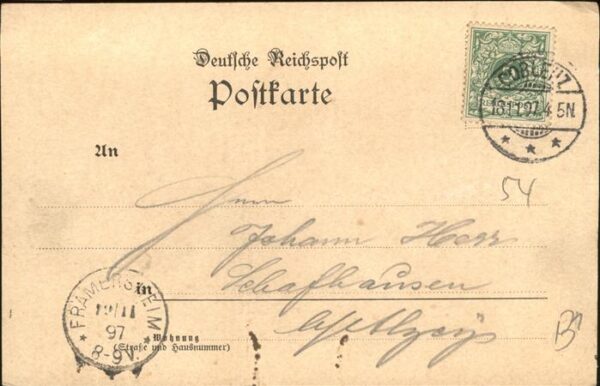 Deutsche Reichspost
Postkarte
COBLENZ
18.11.97. 4-5N
* * *
An
54
Herrn
Johann Herr
in
Schafhausen
b/ Alzey
FRAMERSHEIM
19/11
97
8-9V.
Wohnung
(Straße und Hausnummer)